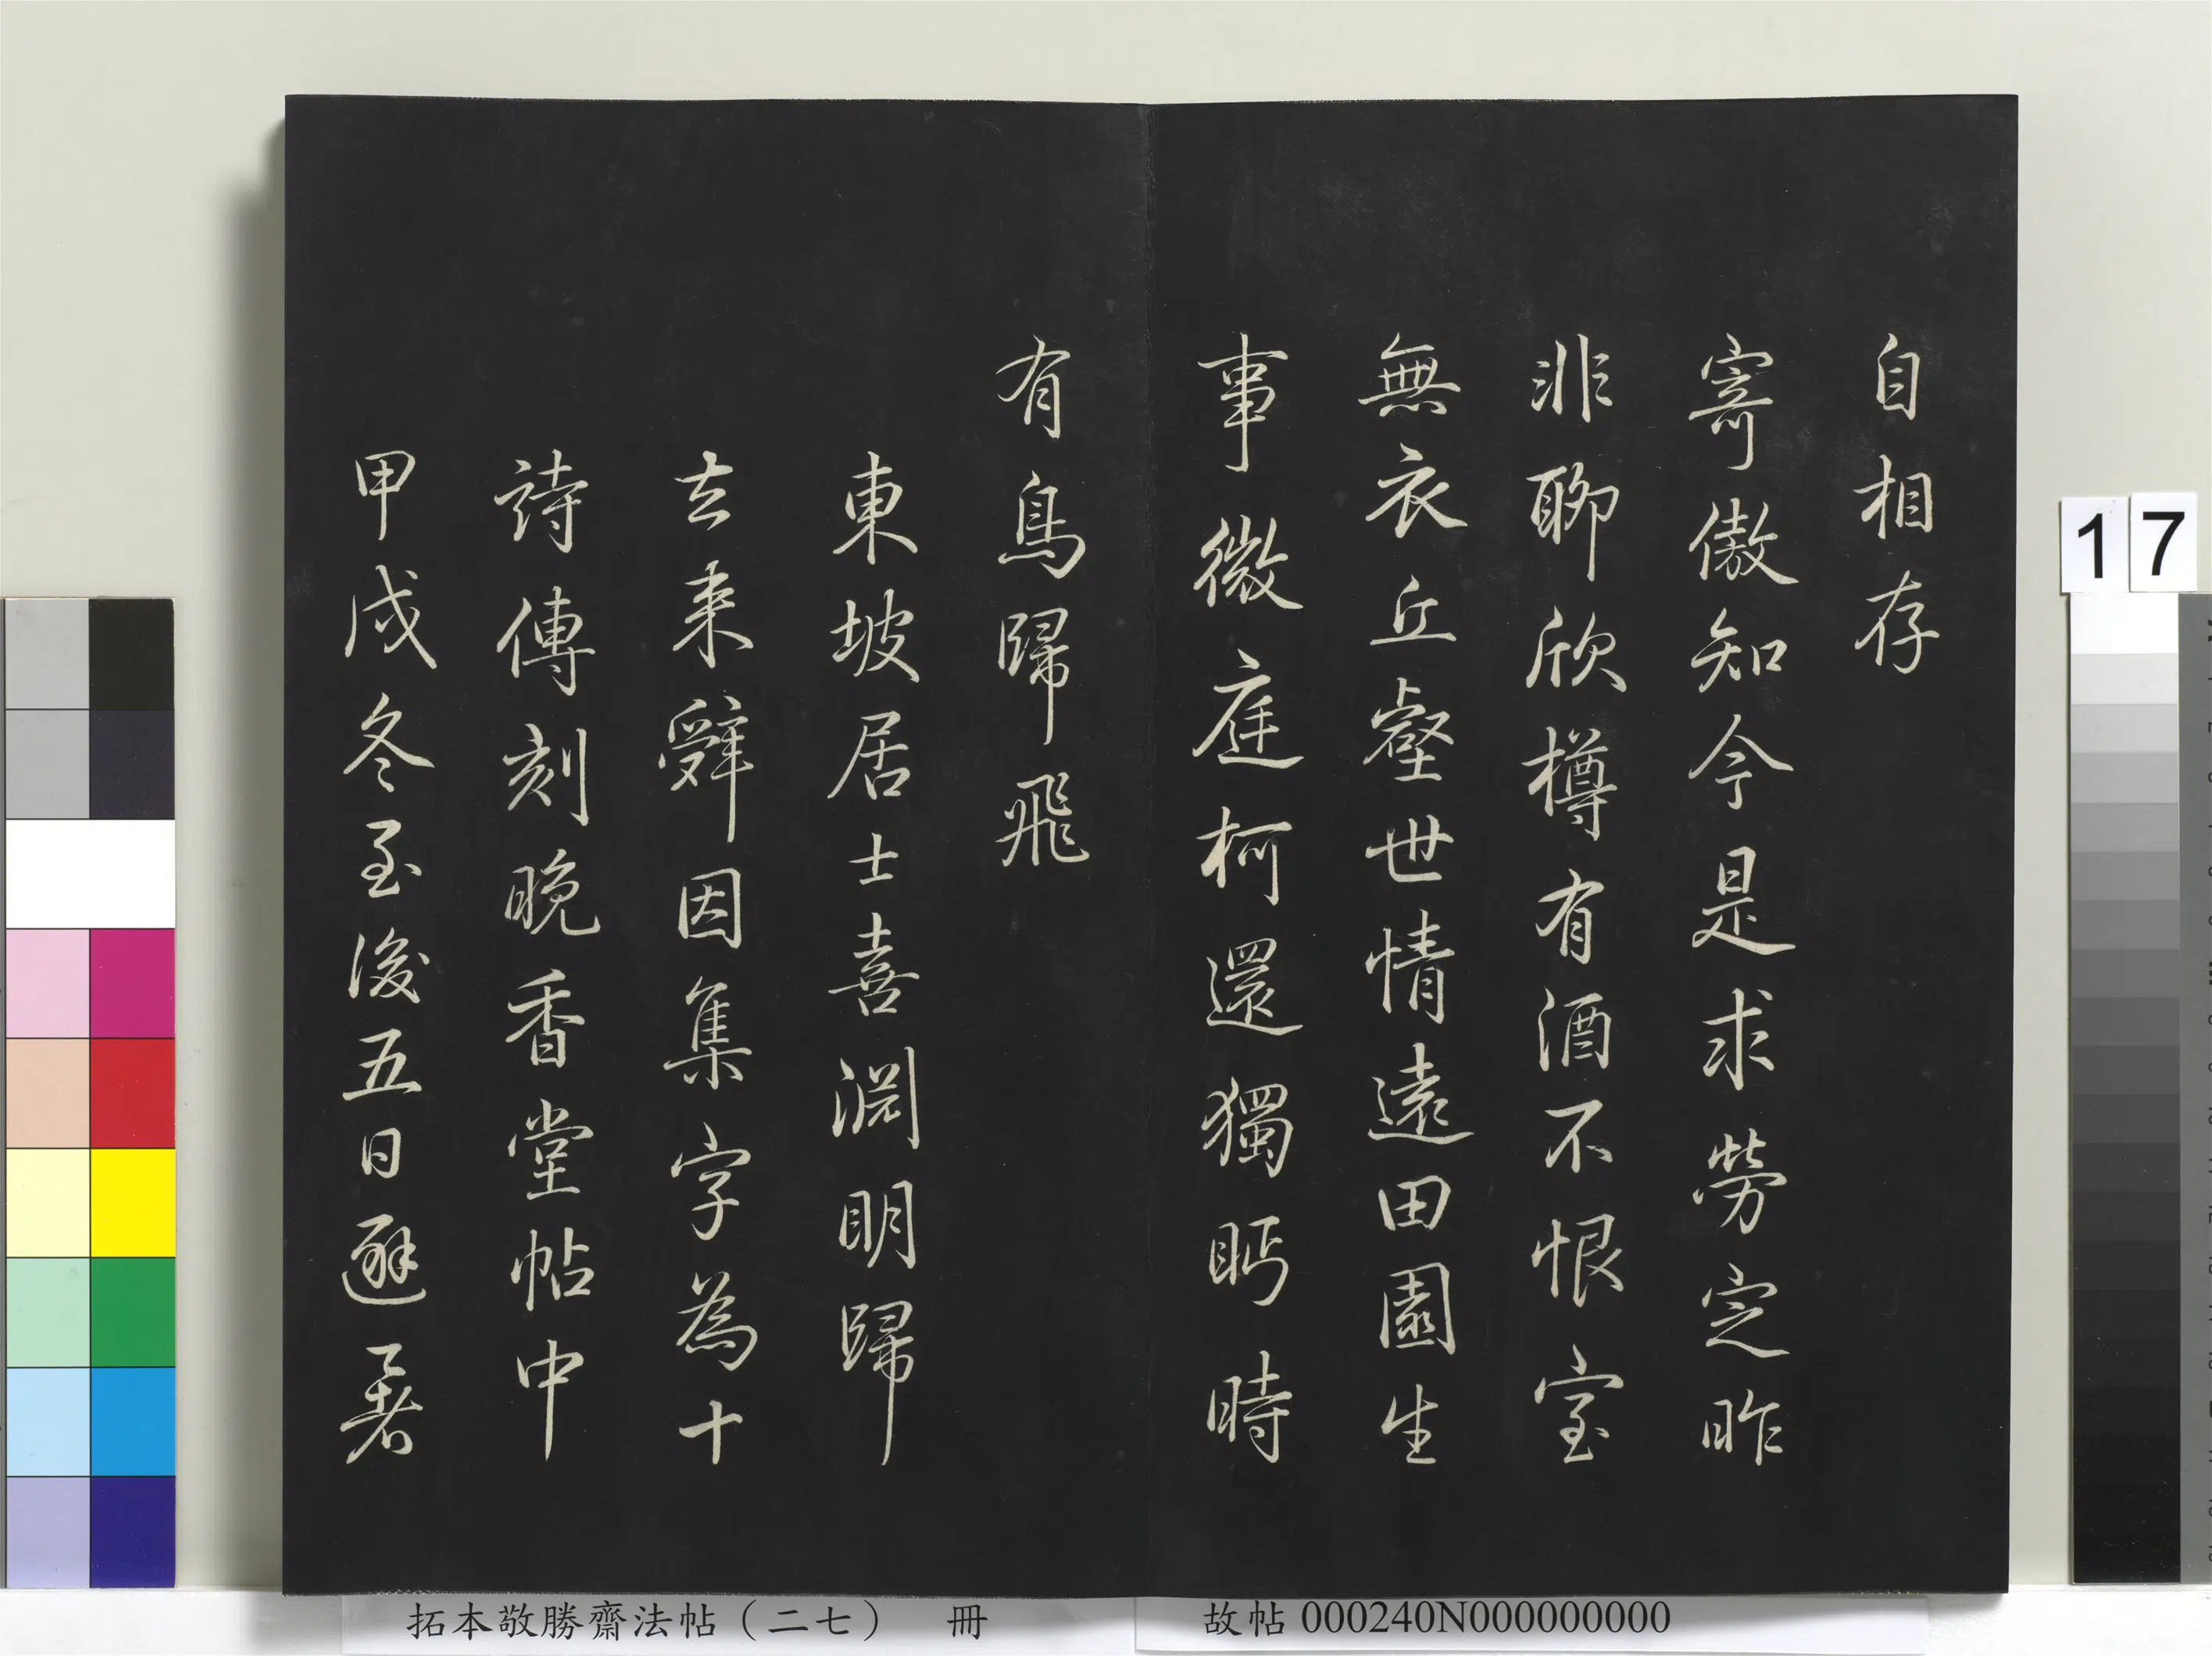 自相存
寄傲知今是求勞定昨
非聊欣樽有酒不恨室
無衣丘壑世情遠田園生
事微庭柯還獨眄時
有鳥歸飛
東坡居士喜淵明歸
去來辭因集字為十
詩傳刻晚香堂帖中
甲戌冬至後五日避暑
拓本敬勝齋法帖（二七） 冊
故帖 000240N000000000
17